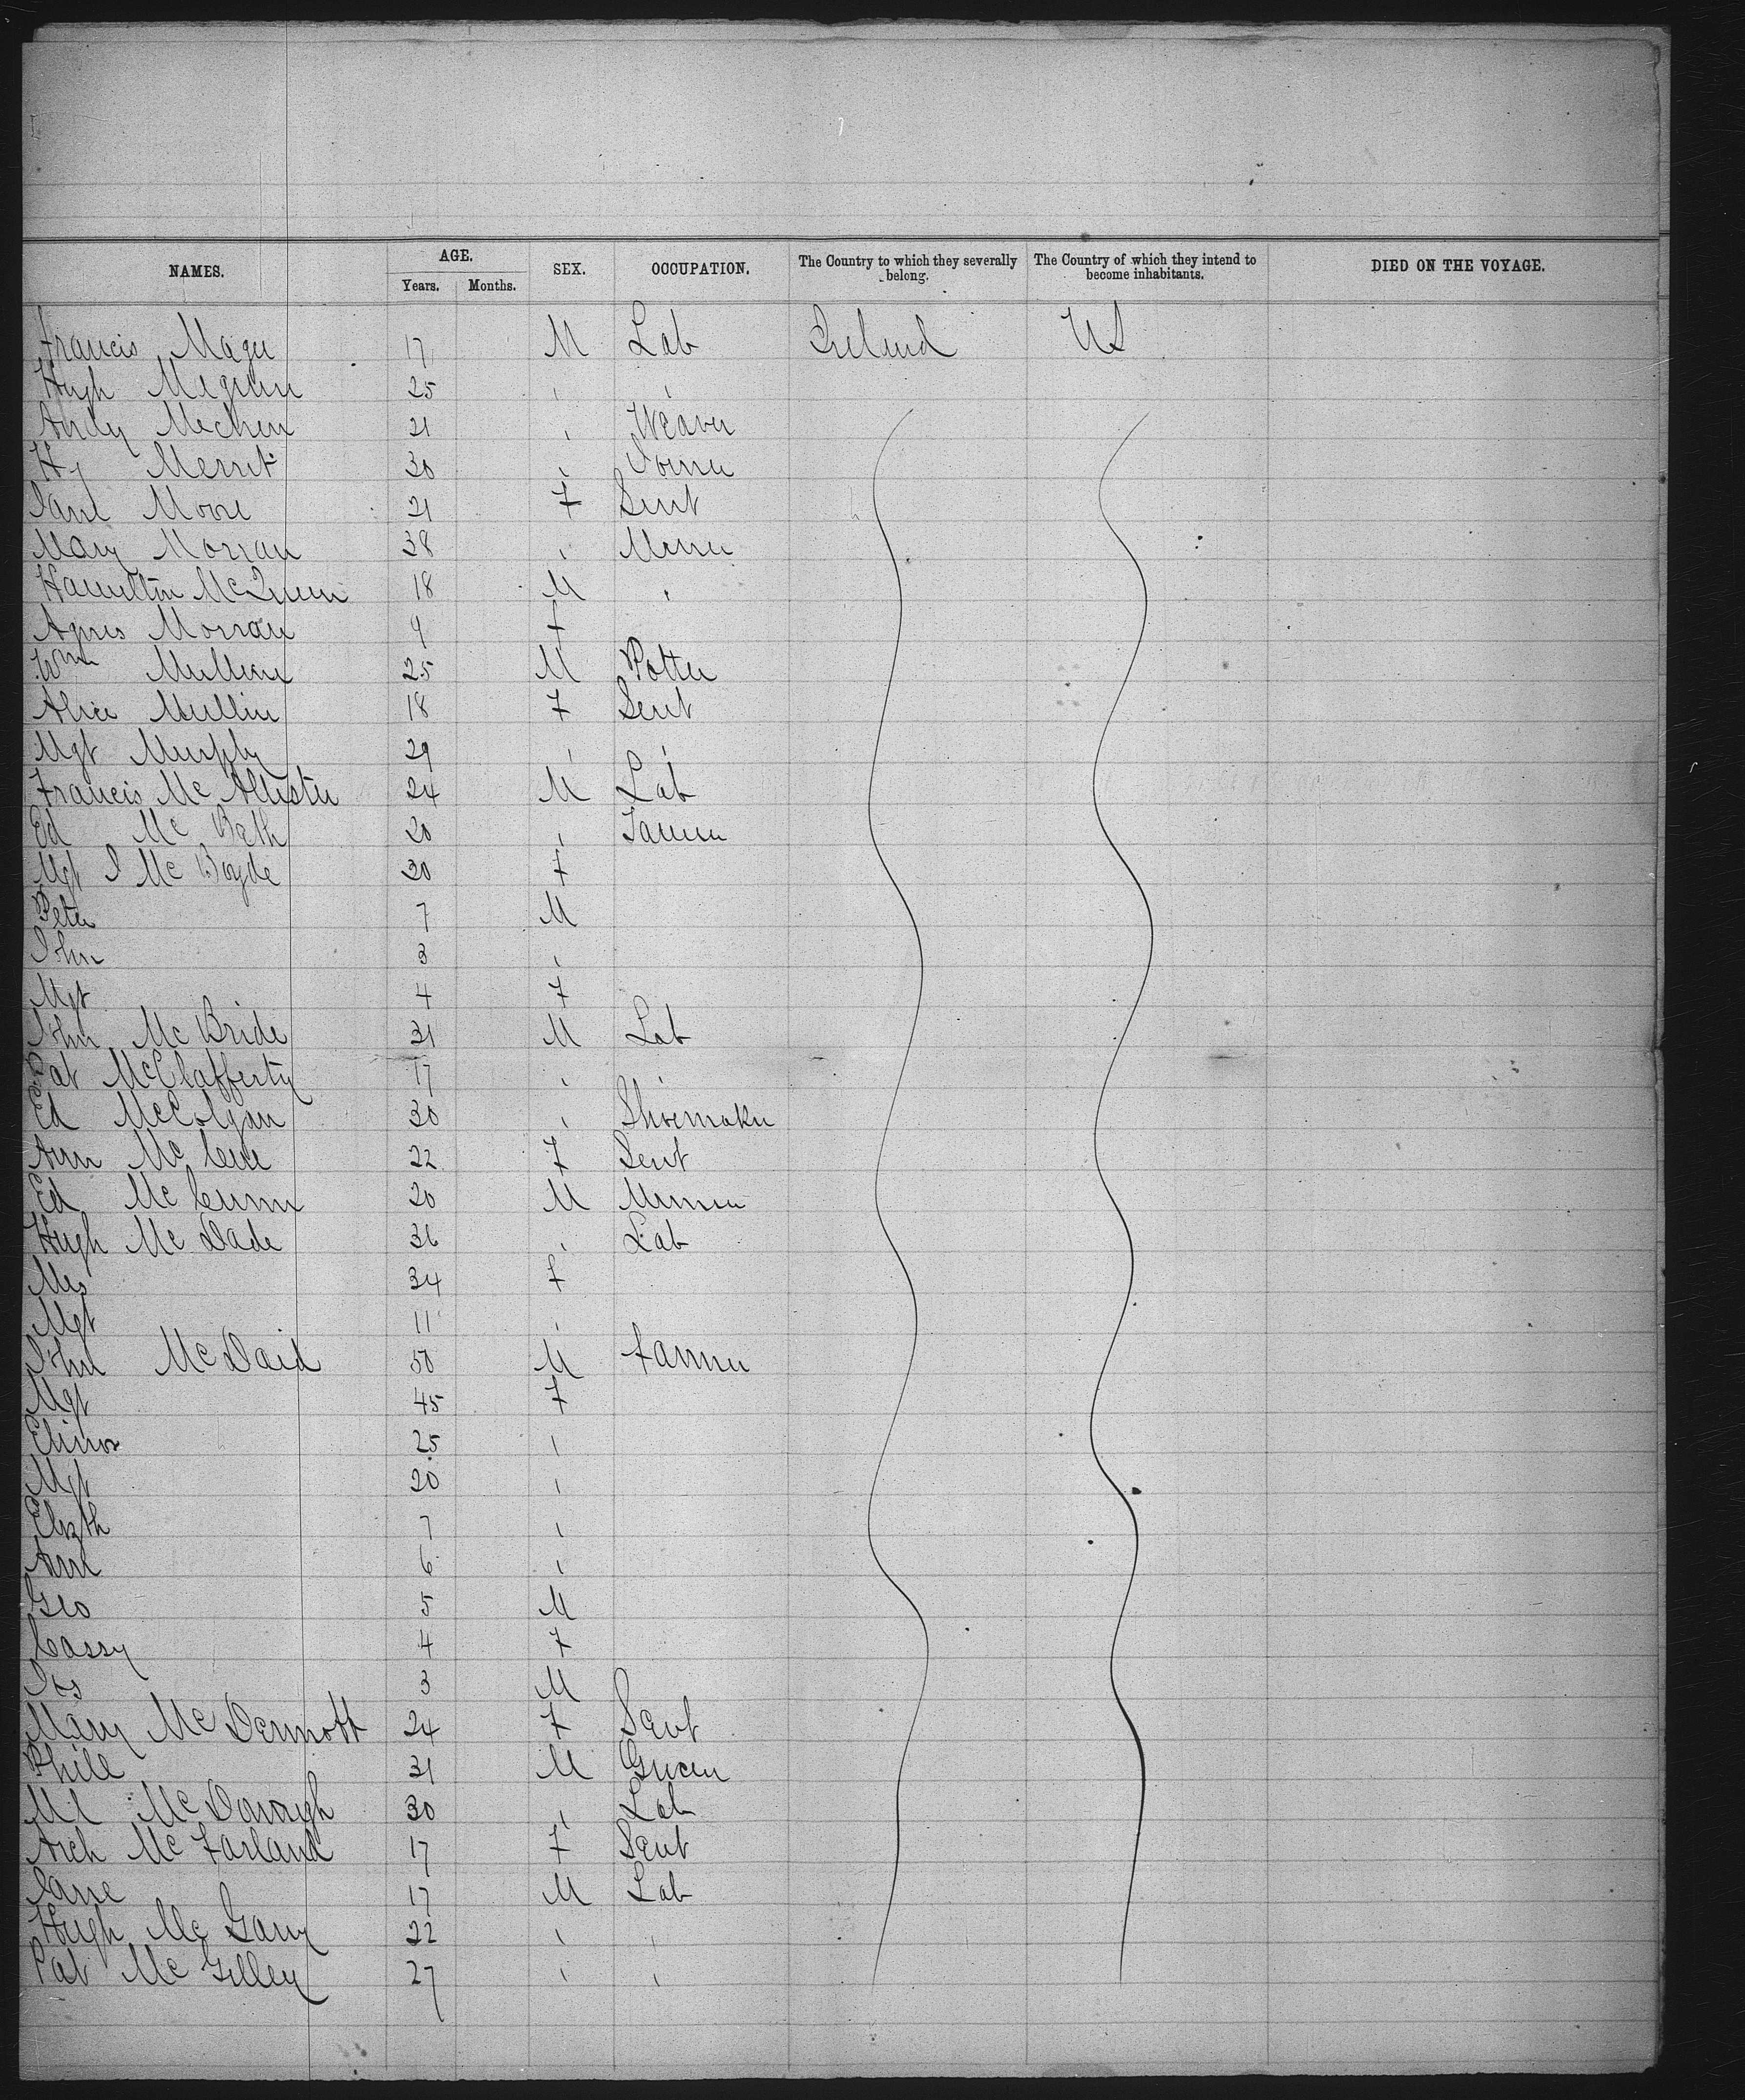 NAMES. AGE. SEX. OCCUPATION. The Country to which they severally belong. The Country of which they intend to become inhabitants. DIED ON THE VOYAGE.
Years. Months.
Francis Magee 17 M Lab Ireland US
Hugh 25 " "
Andy 21 " Weaver
Hy Merrit 30 "
Jane Moore 21 F Servt
Mary Morran 38 " Miner
Hamilton McQueen 18 M "
Agnes Morran 9 f
Wm Mullin 25 M Potter
Alice Mullin 18 F Servt
Mgt Murphy 29 " "
Francis McAllister 24 M Lab
Ed Mc Bath 20 " Farmer
Mgt J Mc Boyde 30 F
Peter 7 M
John 3 "
Mgt 4 F
John Mc Bride 21 M Lab
Pat McClafferty 17 " "
Ed McColgan 30 " Shoemaker
Ann Mc Cue 22 F Servt
Ed Mc 20 M Miner
Hugh Mc Dade 36 " Lab
Mrs 34 f
Mgt 11 "
John McDaid 50 M Farmer
Mgt 45 F
Elinor 25 "
Mgt 20 "
Elizth 7 "
Ann 6 "
Geo 5 M
Cassy 4 F
Jos 3 M
Mary McDermott 24 F Servt
Phill 31 M Grocer
Ml McDonough 30 " Lab
Arch McFarland 17 F Servt
Jane 17 M Lab
Hugh Mc Garry 22 " "
Pat Mc Gilley 27 " "